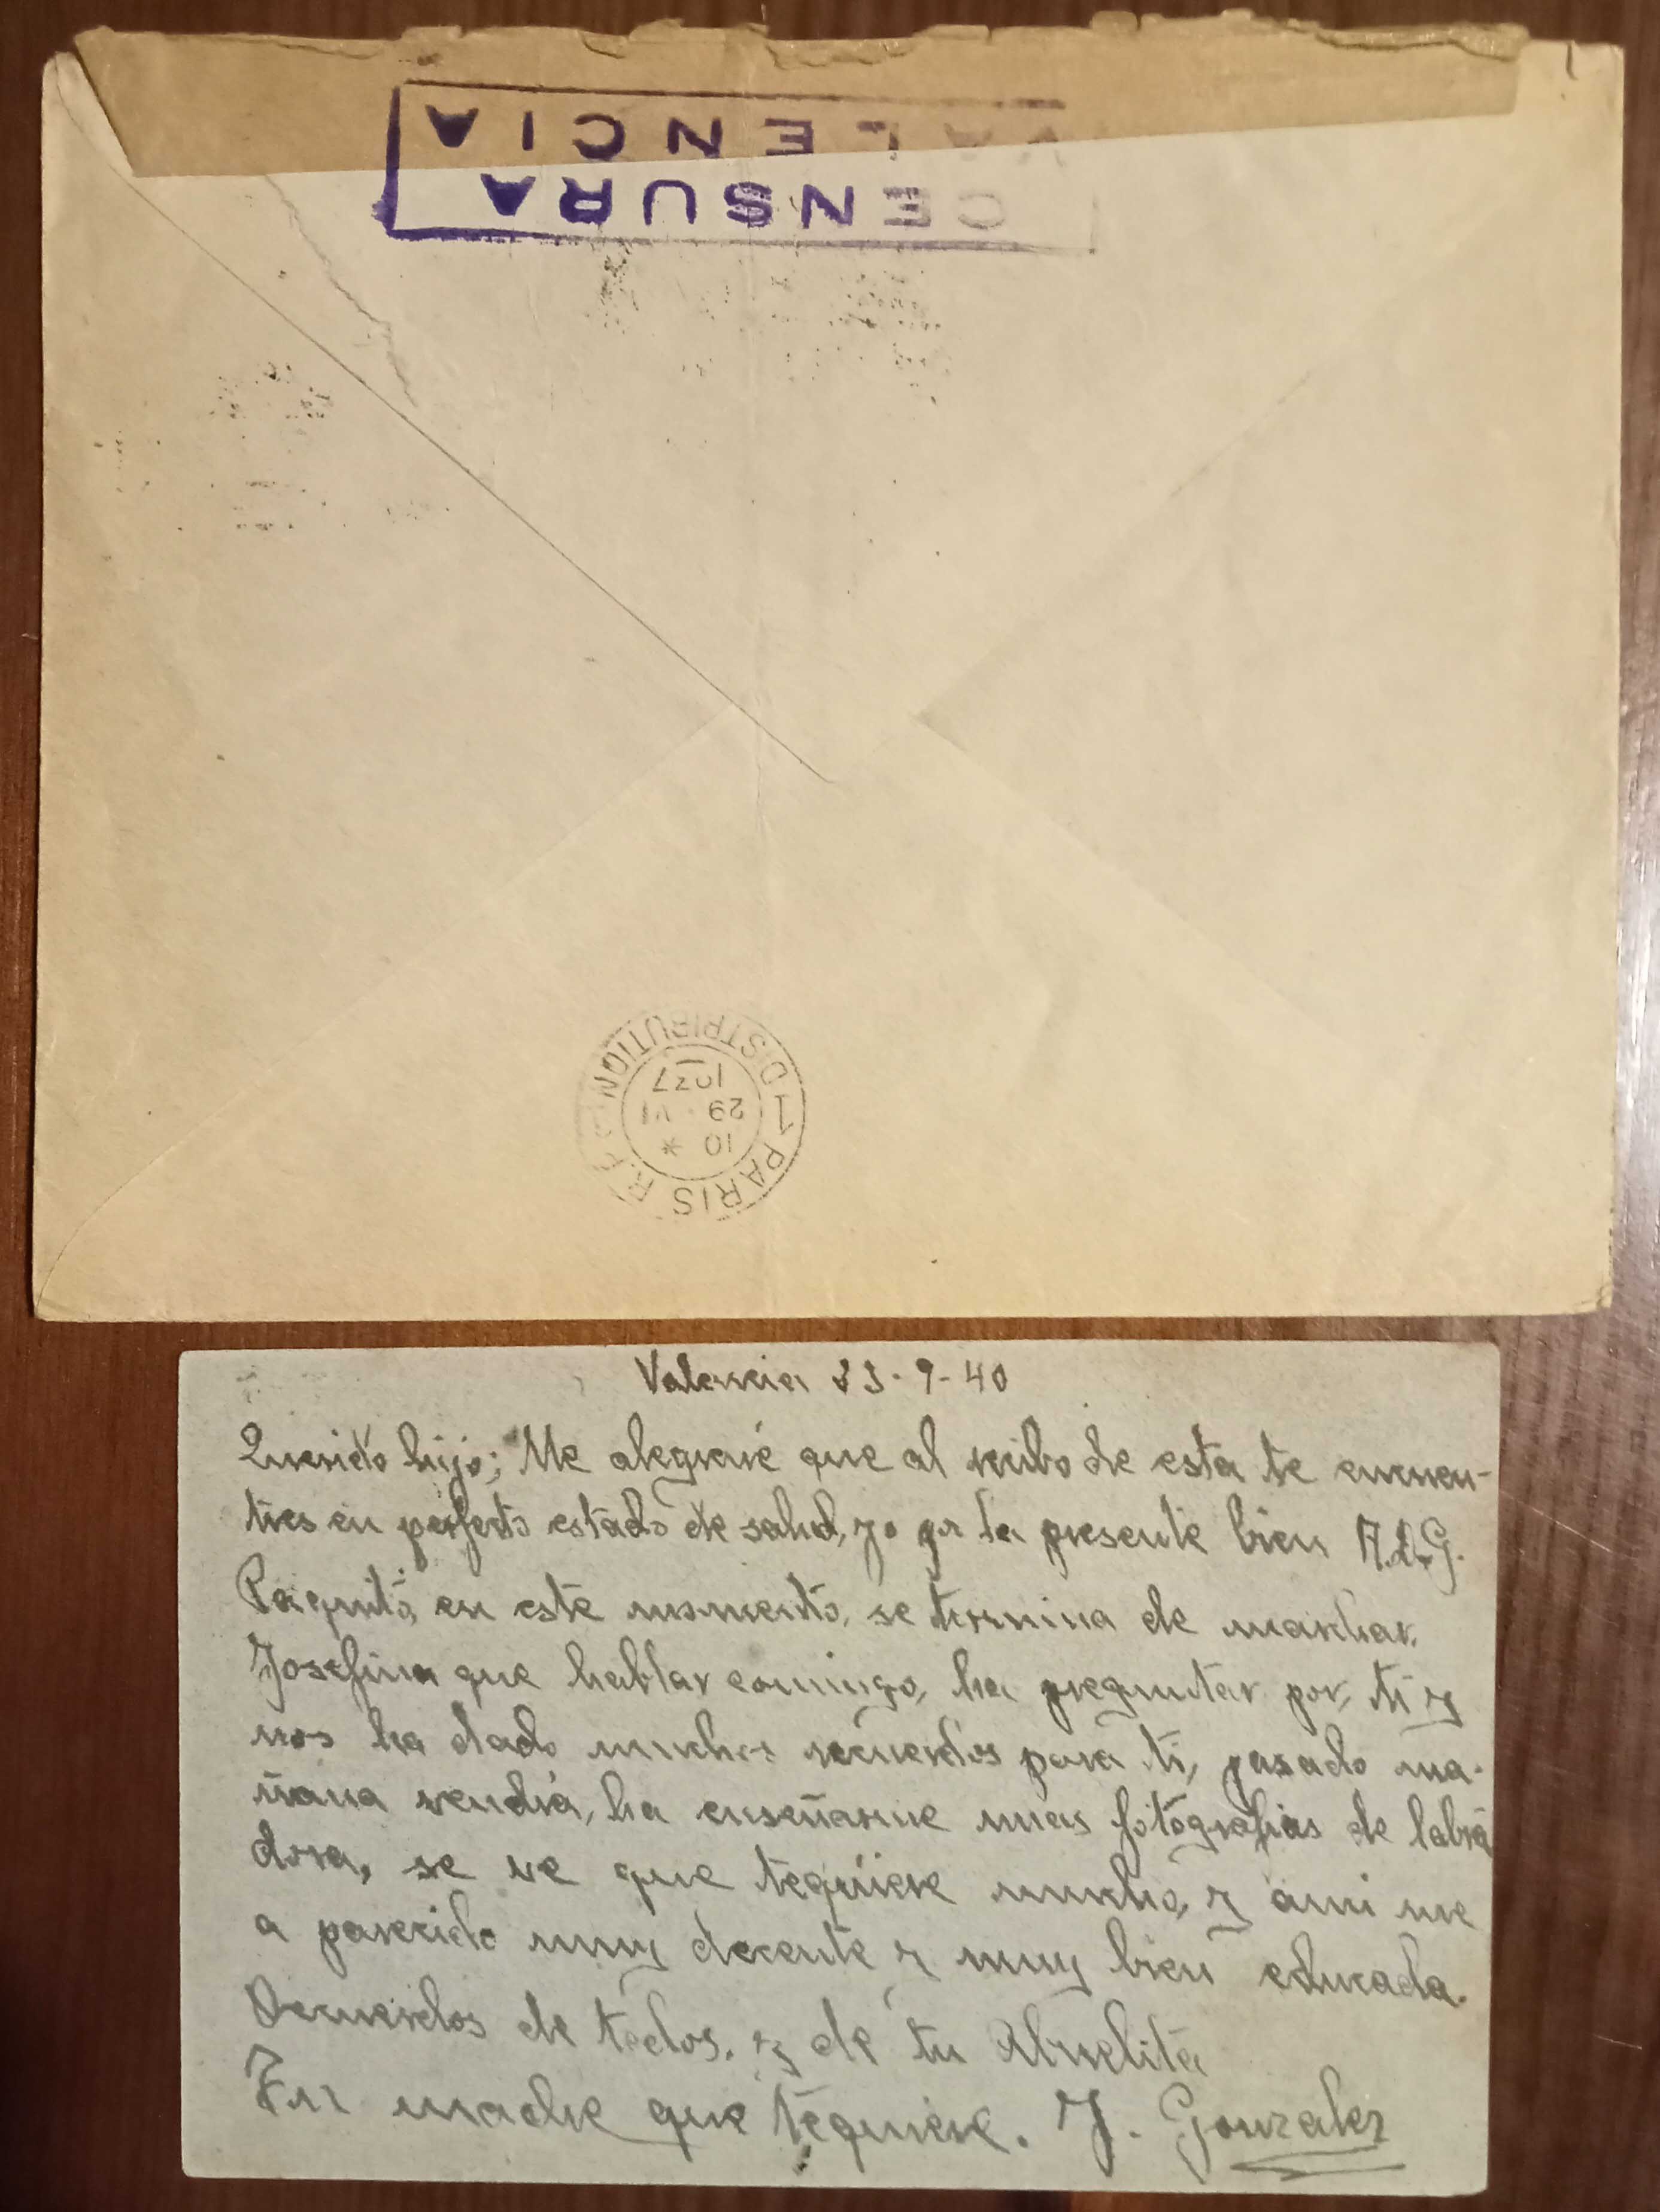 VALENCIA
CENSURA
PARIS R.P.
DISTRIBUTION
1
10 *
29 VI
1037
Valencia 23-9-40
Querido hijo; Me alegraré que al recibo de esta te encuen-
tres en perfecto estado de salud, yo por la presente bien A.D.G.
Paquito, en este momento, se termina de marchar,
Josefina que hablar comingo, ha preguntar por, ti y
nos ha dado muchos recuerdos para ti, pasado ma-
ñana vendrá, ha enseñarme unas fotografias de labra
dora, se ve que tequiere mucho, y ami me
a parecido muy decente y muy bien educada.
Recuerdos de todos, y de tu Abuelita
Tu madre que tequiere. J. Gonzalez